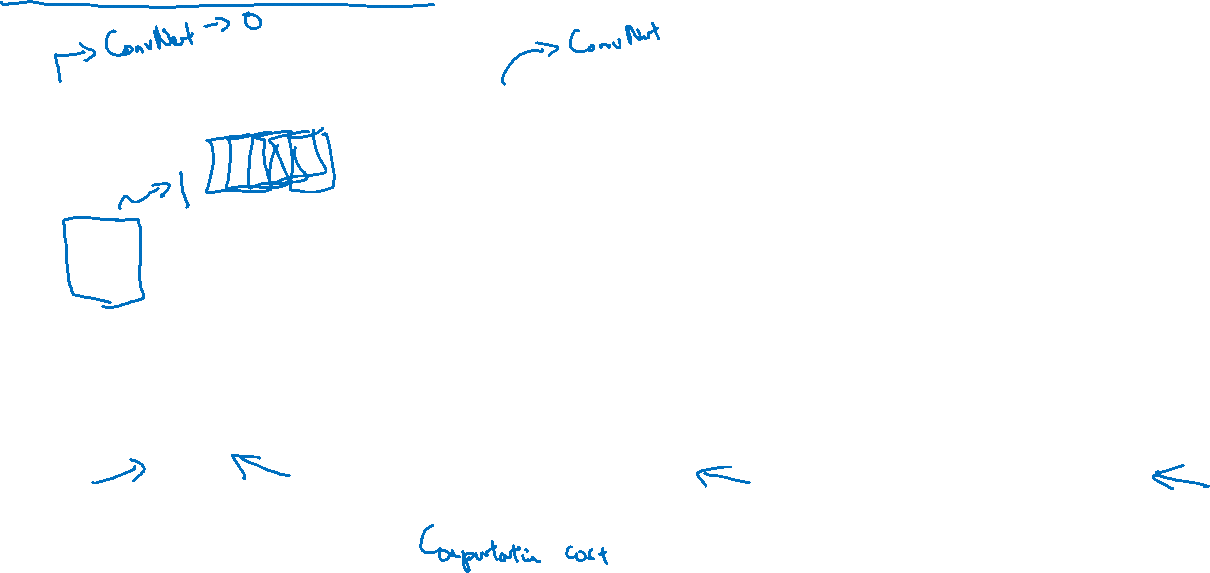 ConvNet → 0
ConvNet
1
Computation cost